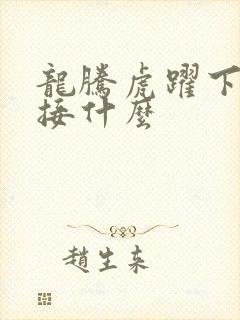 龍騰虎躍下
接什麼
趙生來